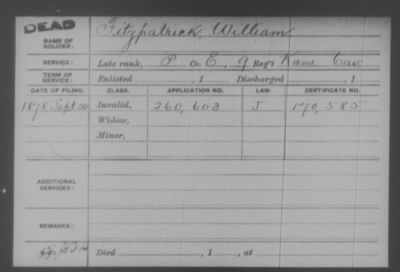 DEAD
NAME OF SOLDIER: Fitzpatrick, William
SERVICE: Late rank, P Co. E, 9 Reg't Kans. Cav.
TERM OF SERVICE: Enlisted , 1 Discharged , 1
DATE OF FILING. CLASS. APPLICATION NO. LAW. CERTIFICATE NO.
1878 Sept. 20 Invalid, 260,603 J 170,585
Widow,
Minor,
ADDITIONAL SERVICES:
REMARKS:
Died , 1 , at